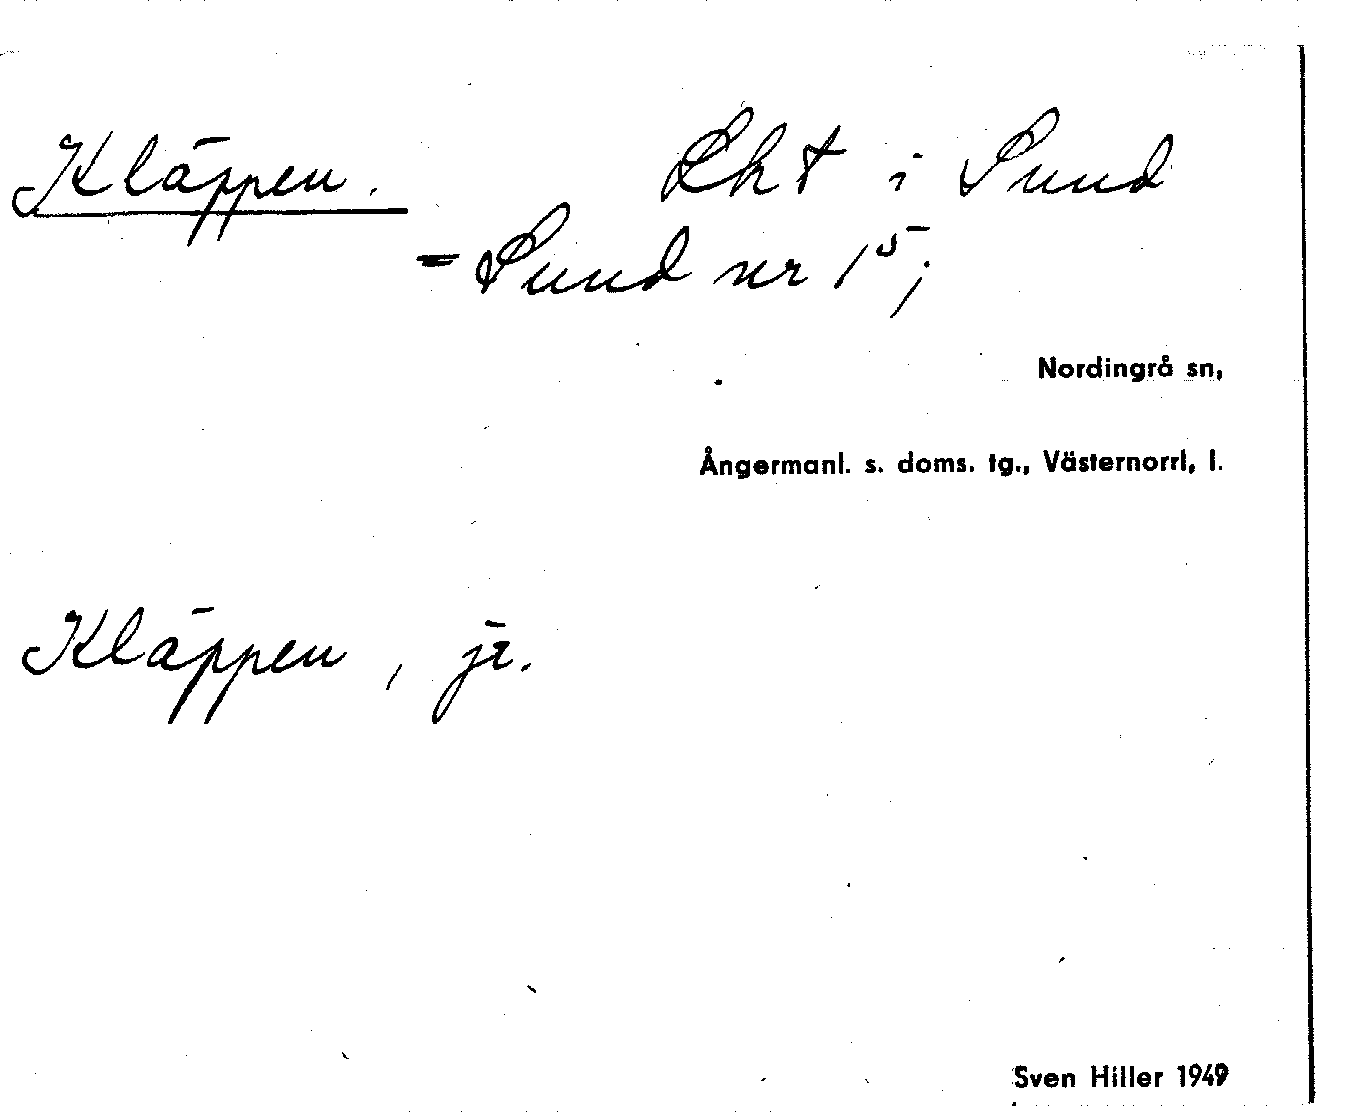 Kläppen. Lht i Sund
= Sund nr 1⁵;
Nordingrå sn,
Ångermanl. s. doms. tg., Västernorrl. l.
Kläppen, jr.
Sven Hiller 1949